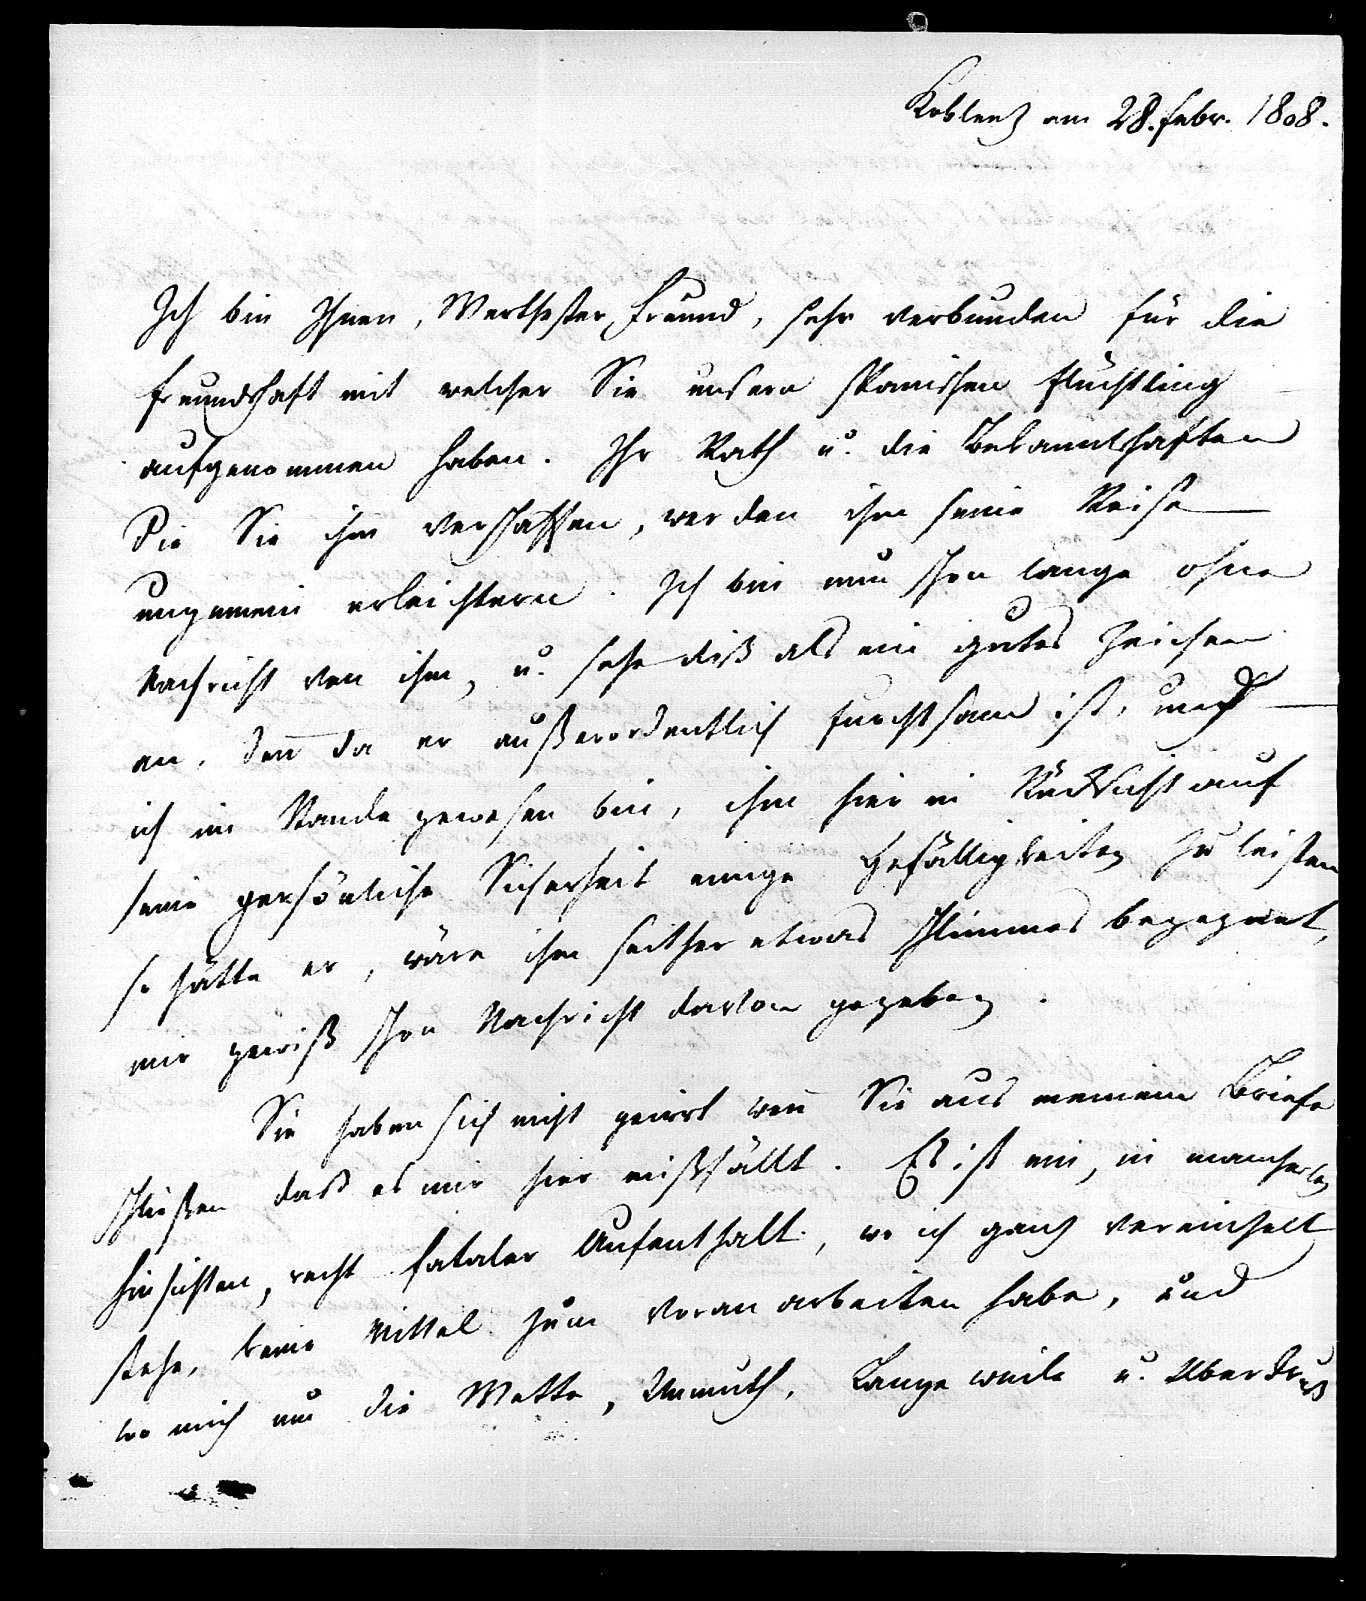 Koblenz am 28. Febr. 1808.
Ich bin Ihnen, Werthester Freund, sehr verbunden für die
Freundschaft mit welcher Sie unsern spanischen Flüchtling
aufgenommen haben. Ihr Rath u. die Bekanntschaften
die Sie ihm verschaffen, werden ihm seine Reise
ungemein erleichtern. Ich bin nun schon lange ohne
Nachricht von ihm, u. sehe diß als ein gutes Zeichen
an, den̄ da er außerordentlich furchtsam ist, und
ich im Stande gewesen bin, ihm hier in Rücksicht auf
seine persönliche Sicherheit einige Gefälligkeiten zu leisten
so hätte er, wäre ihm seither etwas schlimmes begegnet,
mir gewiß schon Nachricht davon gegeben.
Sie haben sich nicht geirrt wen̄ Sie aus meinem Briefe
schließen daß es mir hier mißfällt. Es ist ein, in mancherley
Hinsichten, recht fataler Aufenthalt, wo ich ganz vereinzelt
stehe, keine Mittel zum voran arbeiten habe, und
wo mich um die Wette, Unmuth, Langeweile u. Überdruß